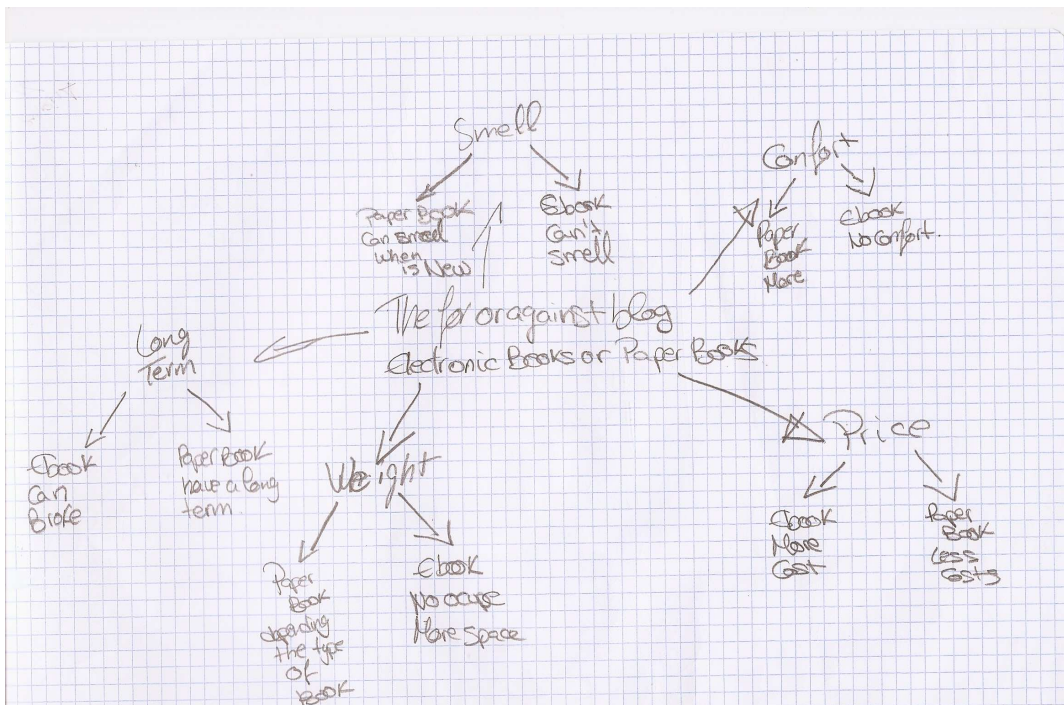 Smell
Paper Book
Can smell
when
is New
Ebook
Can't
smell
Confort
Paper
Book
More
Ebook
No Confort.
The for or against blog
Electronic Books or Paper Books
Long
Term
Ebook
Can
Broke
Paper Book
have a long
term
Weight
Paper
Book
depending
the type
of
Book
Ebook
No ocupe
More space
Price
Ebook
More
Cost
Paper
Book
Less
Costs